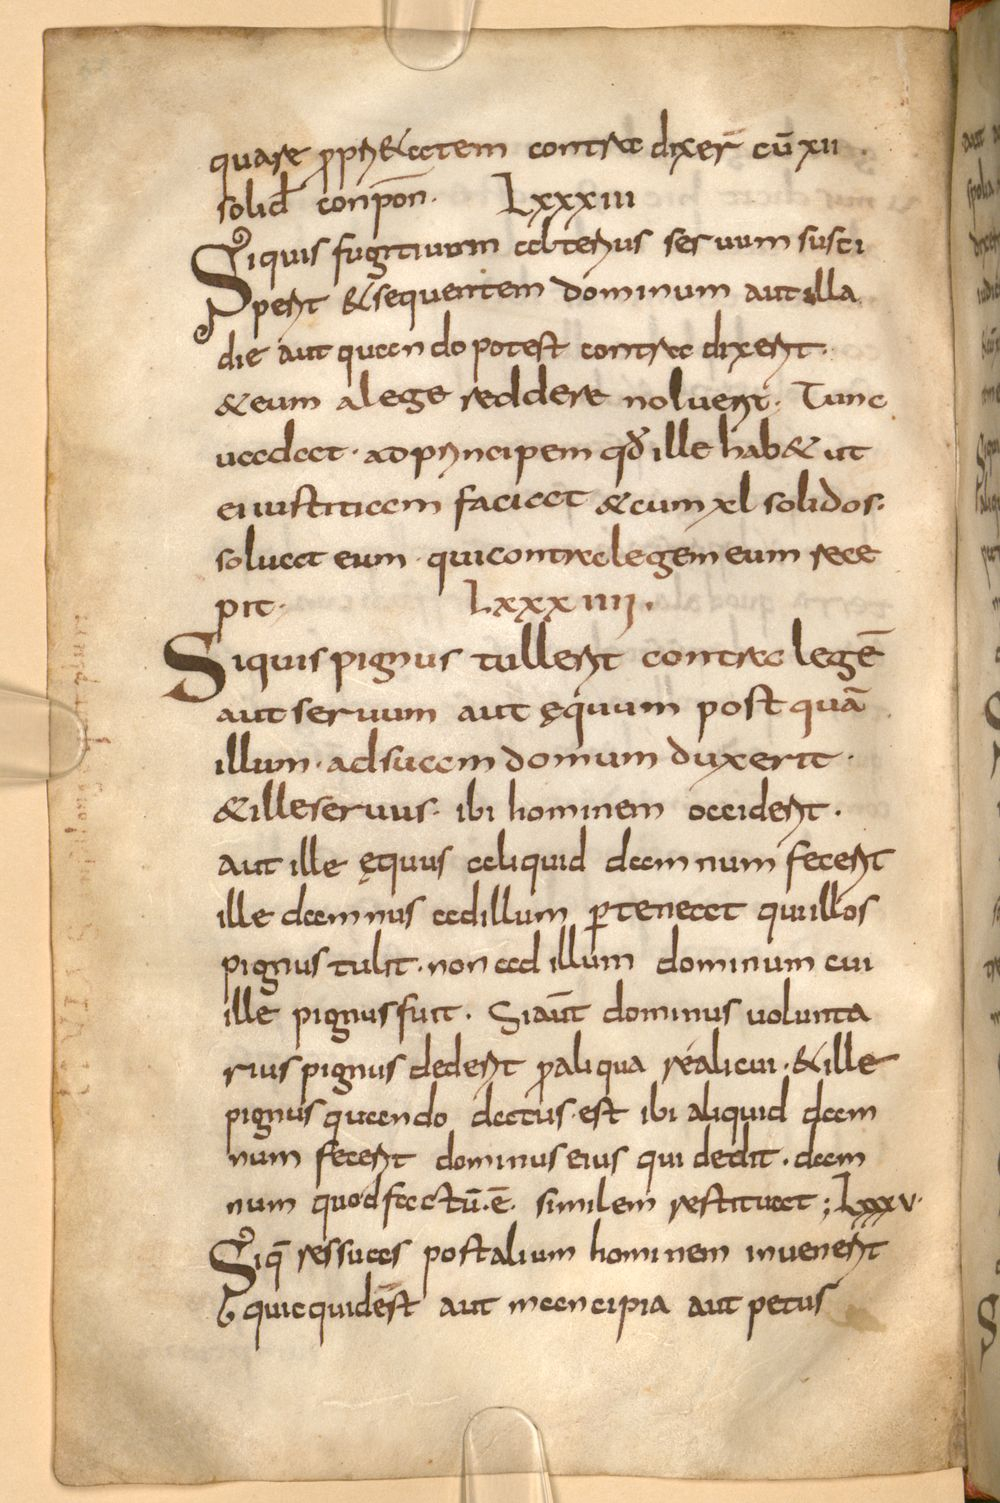 quare ꝓpri&atem contra dixer̄ cū xii
solid̄ conpōn. Lxxxiii
Siquis fugitiuum alterius seruum susci
perit & sequentem dominum aut illa
die aut quando potest contra dixerit.
& eum a lege reddere noluerit. Tunc
uadat. ad principem qd̄ ille hab& ut
ei iustitiam faciat & cum xl solidos.
soluat eum. qui contra legem eum rece
pit. Lxxxiiii.
Siquis pignus tullerit contra legē
aut seruum aut ęquum post quā
illum. ad suam domum duxerit.
& ille seruus. ibi hominem occiderit.
aut ille ęquus aliquid damnum fecerit
ille damnus ad illum ꝑteneat qui illos
pignus tulit. non ad illum dominum cui
ille pignus fuit. Si aūt dominus volunta
rius pignus dederit ꝓ aliqua re alicui. & ille
pignus quando datus. est ibi aliquid dam
num fecerit dominus eius qui dedit. dam
num quod factū. ē. similem restituat; Lxxxv.
Siq̄ res suas post alium hominem inuenerit
quicquid est aut mancipia aut pecus